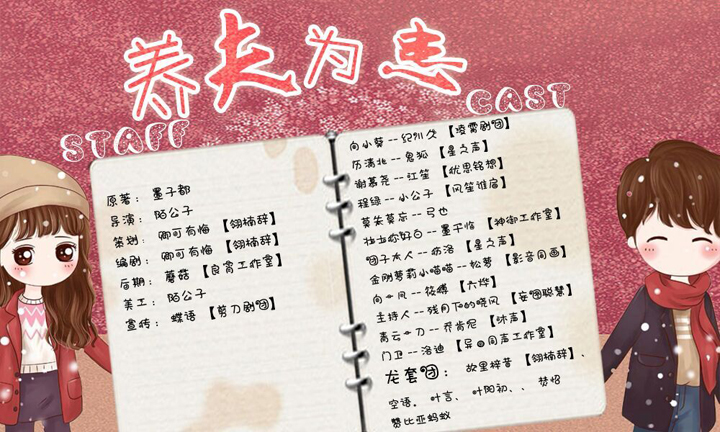 养夫为患
STAFF
CAST
原著：墨子都
导演：陌公子
策划：卿可有悔【翎楠辞】
编剧：卿可有悔【翎楠辞】
后期：蘑菇【良宵工作室】
美工：陌公子
宣传：蝶语【剪刀剧团】
向小葵--纪川久【凌霄剧团】
历清北--鬼狐【星之声】
谢慕尧--江笙【优思铭想】
程绿--小公子【风笙谁启】
莫失莫忘--弓也
壮士你好白--墨千临【神御工作室】
团子大人--杨洛【星之声】
金刚萝莉小喵喵--松萝【影音同画】
向一凤--筱幡【六烨】
主持人--残月下的晓风【妄图聪慧】
青云一刀--乔肯尼【沐声】
门卫--洛迪【异口同声工作室】
龙套团：故里梓音【翎楠辞】、
空语。叶言、叶阳初、、梦恬
赞比亚蚂蚁